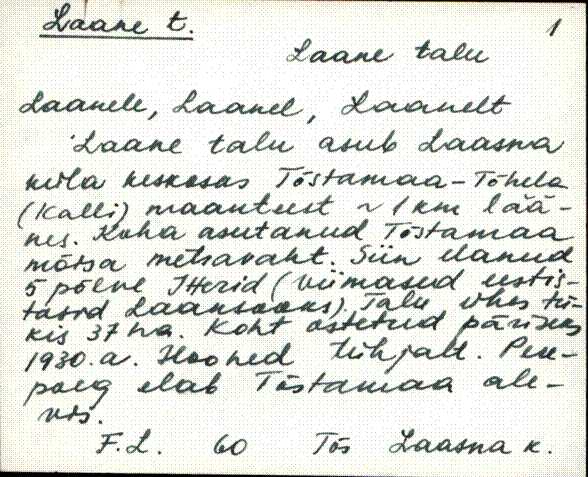 Laane t. 1
Laane talu
Laanele, Laanel, Laanelt
Laane talu asub Laasma
küla keskosas Tõstamaa-Tõhela
(Kalli) maanteest ~ 1 km lää-
nes. Koha asutanud Tõstamaa
mõisa metsavaht. Siin elanud
5 põlve Herid (viimased eestis-
tasid Laansooks). Talu ühes tü-
kis 37 ha. Koht ostetud päriseks
1930. a. Hooned tühjalt. Pere-
poeg elab Tõstamaa ale-
vis.
F.L. 60 Tõs Laasma k.